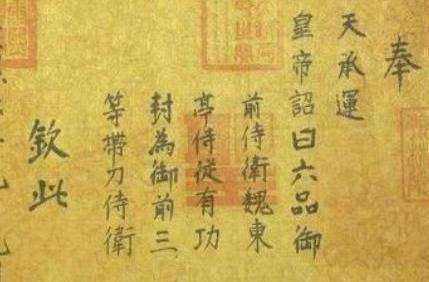 奉
天承運
皇帝詔曰六品御
前侍衛魏東
亭侍從有功
封為御前三
等帶刀侍衛
欽此